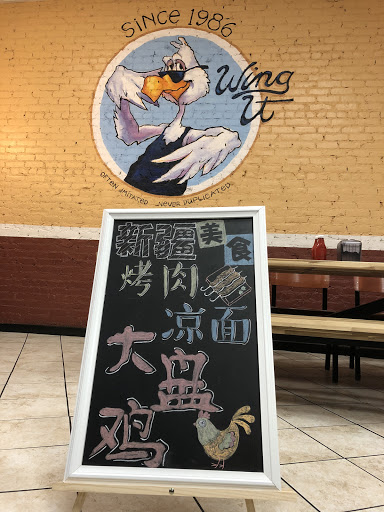 SINCE 1986
Wing It
OFTEN IMITATED ...NEVER DUPLICATED...
新疆美食
烤肉
凉面
大盘鸡